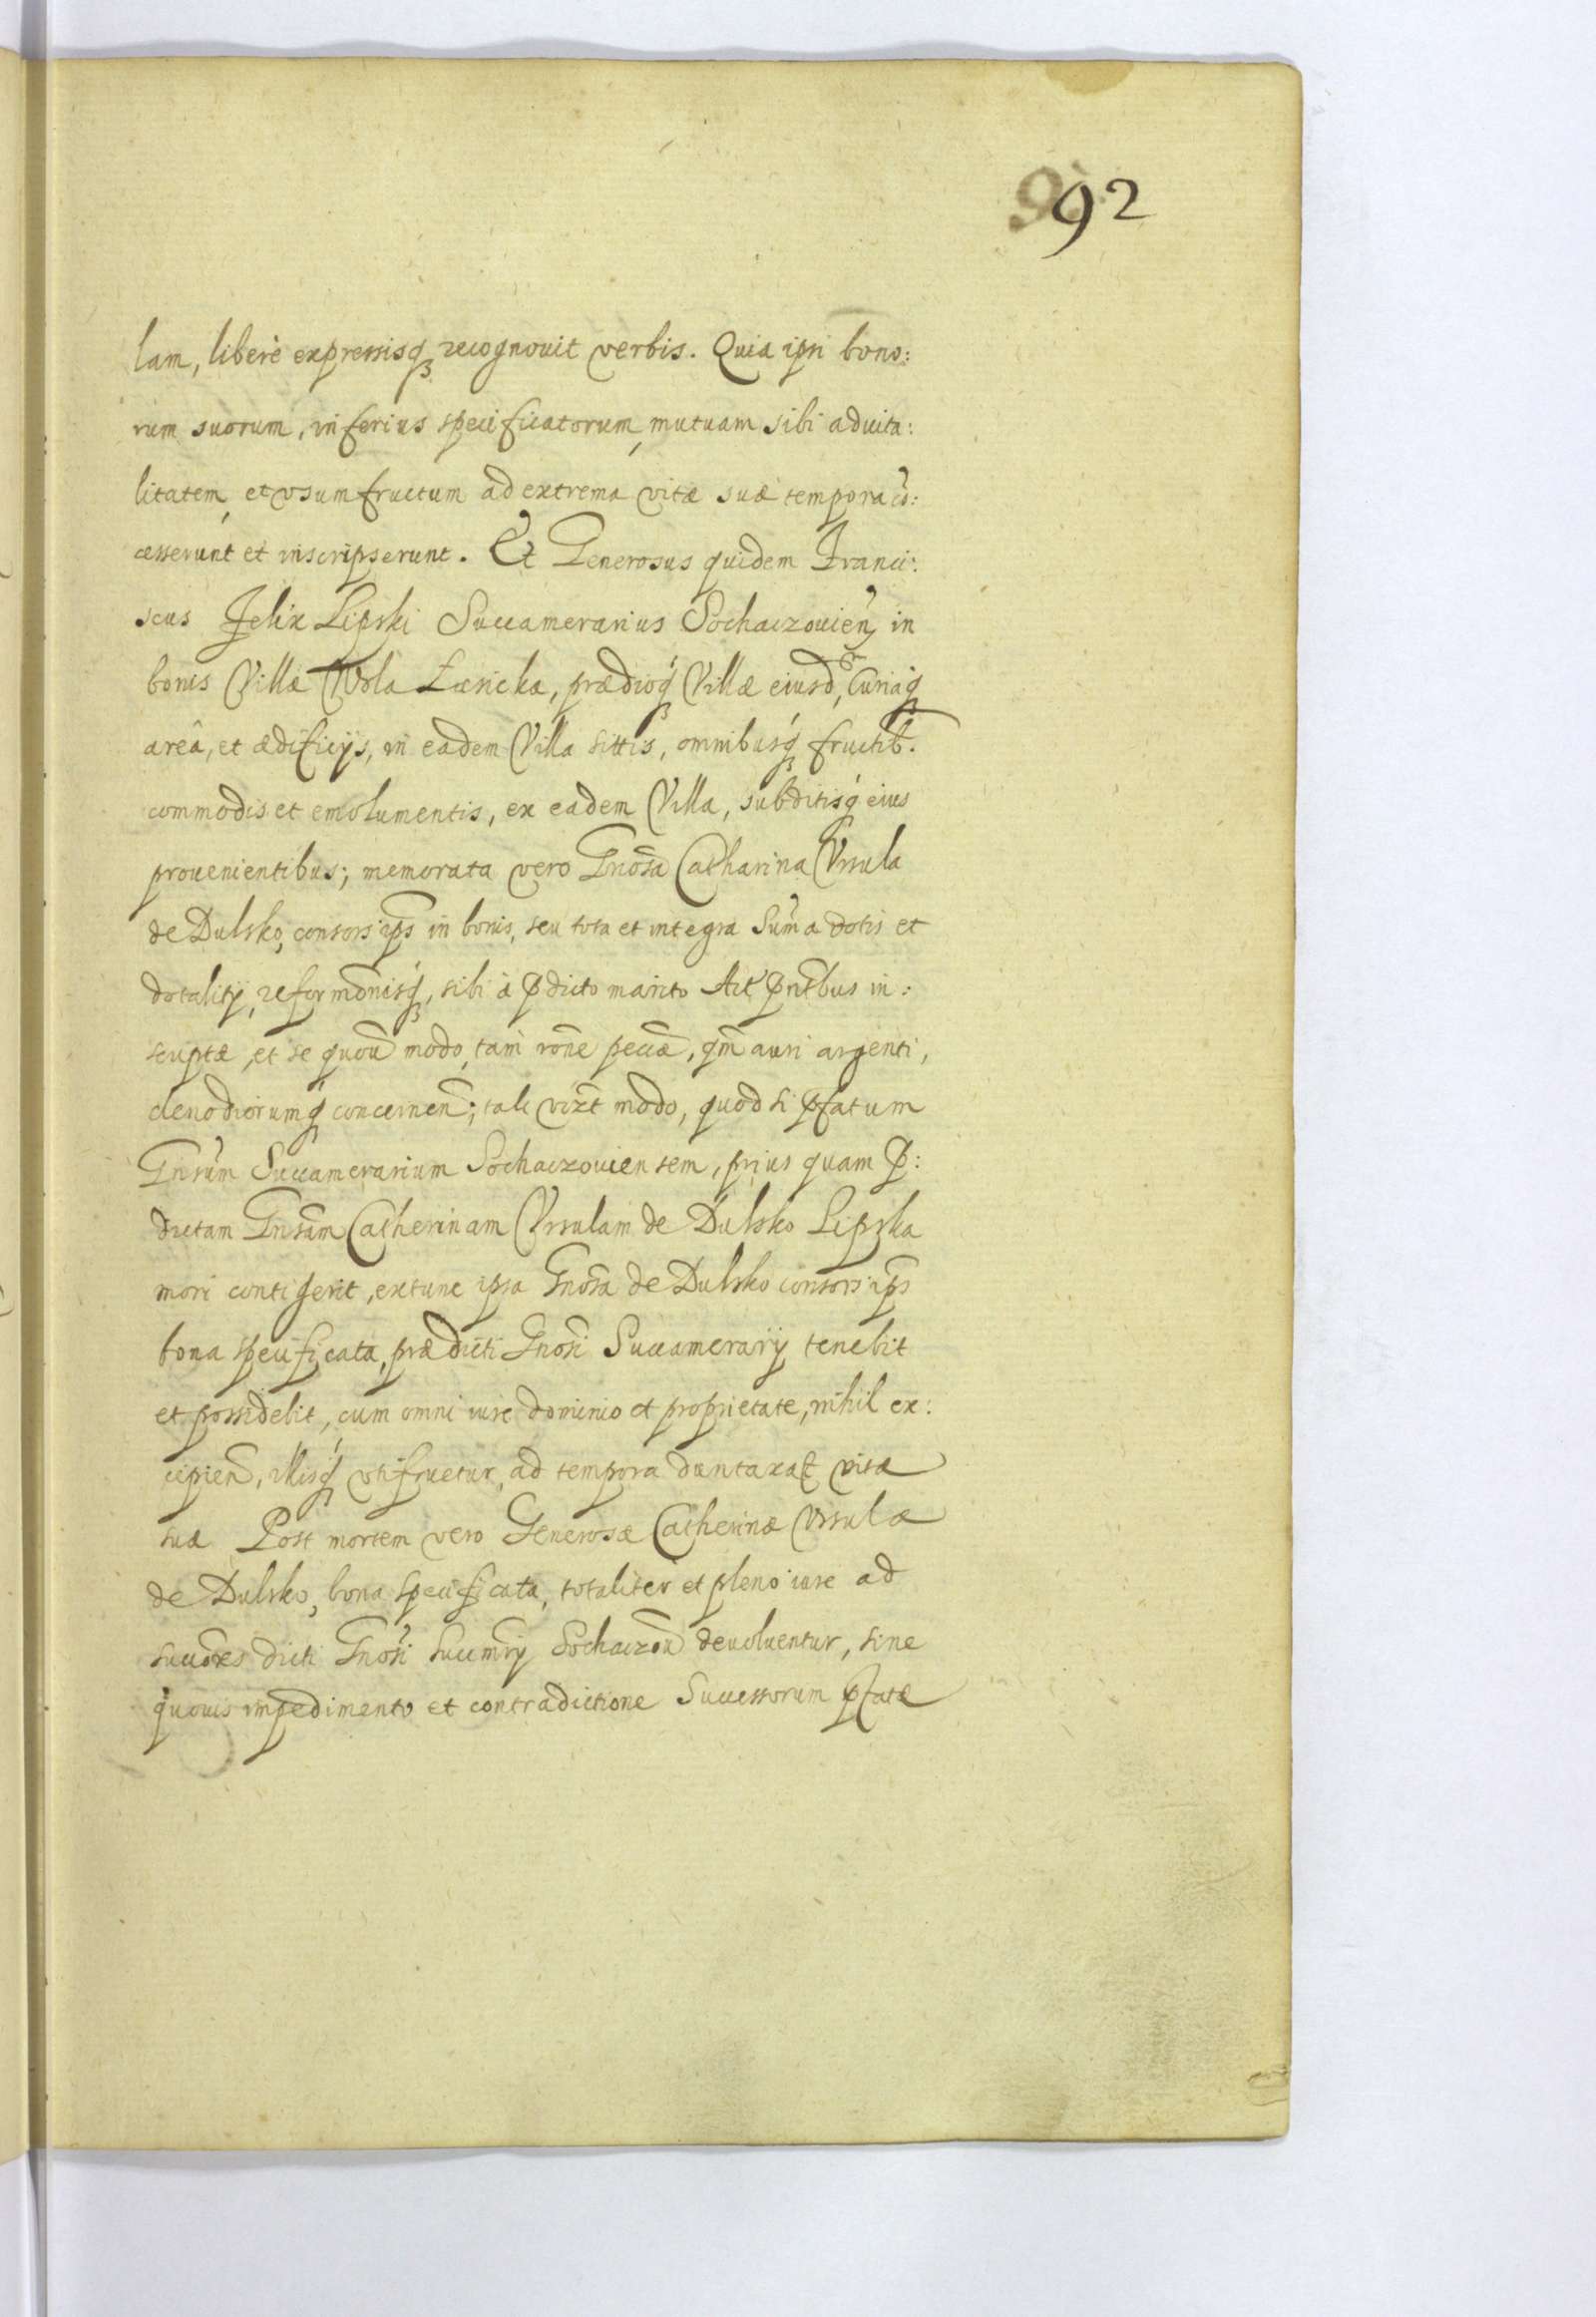 92
lam, liberè expressisq₃ recognouit verbis. Quia ipsi bono:
rum suorum, inferius specificatorum, mutuam sibi aduita:
litatem, et vsumfructum ad extrema vitæ suæ tempora cõ:
cesserunt et inscripserunt. Et Generosus quidem Franci:
scus Felix Lipski Succamerarius Sochaczouien̄ in
bonis Villæ Wola Łasicka, prædioq₃ Villæ eiusd̄, Curiaq₃
areâ, et ædificijs, in eadem Villa sittis, omnibusq₃ fructib.
commodis et emolumentis, ex eadem Villa, subditisq₃ eius
prouenientibus; memorata vero Gnõsa Catharina Vrsula
de Dulsko, consors ip̄s in bonis, seu tota et integra Sum̄a dotis et
dotalitij, reformõnisq₃, sibi à p̄dicto marito Act̄ p̄ntibus in:
scriptæ, et se quou̅ modo, tam rõne pecuæ̃, qm̄ auri argenti,
clenodiorumq₃ concernen̄; tali vizt modo, quod si p̄fatum
Gnsũm Succamerarium Sochaczouiensem, prius quam p̄:
dictam Gnsãm Catherinam Vrsulam de Dulsko Lipska
mori contigerit, extunc ipsa Gnõsa de Dulsko consors ip̄s
bona specificata, prædicti Gnõsi Succamerarij tenebit
et possidebit, cum omni iure dominio et proprietate, nihil ex:
cipien̄, illisq₃ vtifruetur, ad tempora duntaxat vitæ
suæ Post mortem vero Generosæ Catherinæ Vrsulæ
de Dulsko, bona specificata, totaliter et pleno iure ad
succõres dicti Gnõsi succmr̄ij Sochaczou̅ deuoluentur, sine
quouis impedimento et contradictione Successorum p̄fatæ